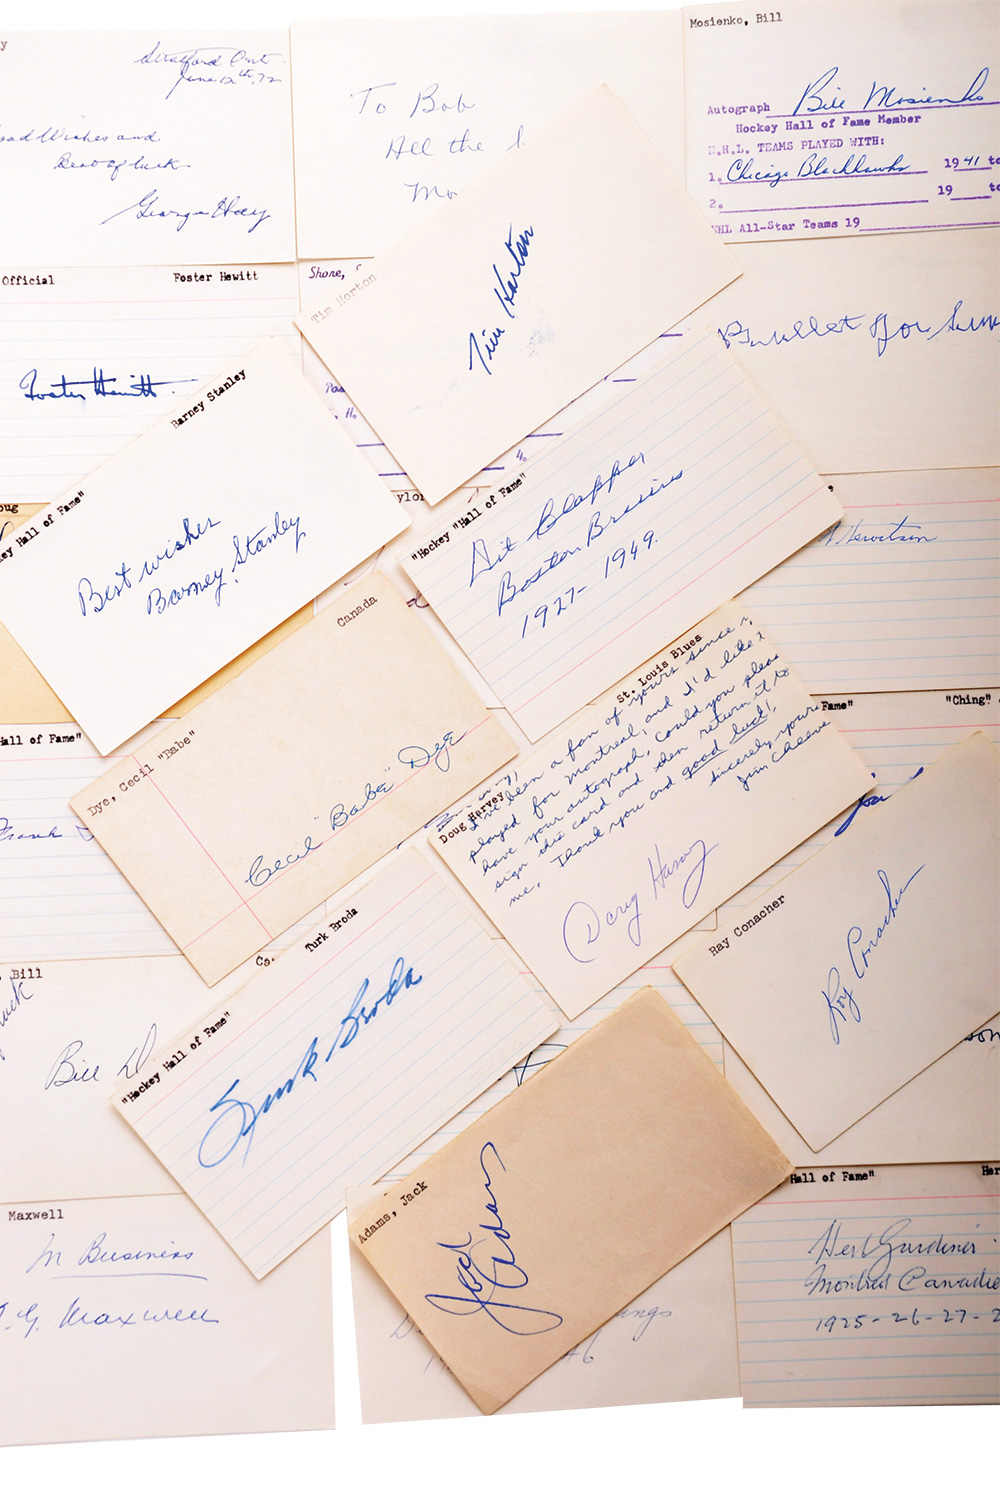 Stratford Ont.
June 12th, 72
Good Wishes and
Best of luck
George Hay
To Bob
All the
Mosienko, Bill
Autograph Bill Mosienko
Hockey Hall of Fame Member
N.H.L. TEAMS PLAYED WITH:
1. Chicago Blackhawks 1941 to
2. 19 to
NHL All-Star Teams 19
Official Foster Hewitt
Foster Hewitt
Shore,
Tim Horton
Tim Horton
Barney Stanley
Hall of Fame"
Best wishes
Barney Stanley
"Hockey "Hall of Fame"
Dit Clapper
Boston Bruins
1927-1949.
Hewitson
Canada
Dye, Cecil "Babe"
Cecil "Babe" Dye
St. Louis Blues
Doug Harvey
I've been a fan of yours since
played for Montreal, and I'd like
have your autograph. Could you please
sign this card and then return it to
me. Thank you and good luck!
sincerely yours
Jim
Doug Harvey
Hall of Fame"
Frank
Fame" "Ching"
Roy Conacher
Roy Conacher
Turk Broda
"Hockey Hall of Fame"
Turk Broda
Bill
Bill
Adams, Jack
Jack Adams
Maxwell
In Business
Maxwell
Hall of Fame" Her
Herb Gardiner
Montreal Canadie
1925-26-27-2